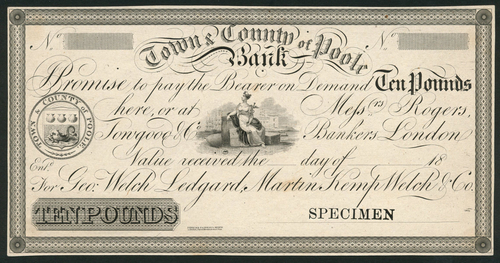 No No
Town & County of Poole
Bank
Promise to pay the Bearer on Demand Ten Pounds
here, or at Messrs Rogers,
TOWN & COUNTY of POOLE
Towgood & Co. Bankers London
Value received the day of 18
Entd.
For Geo: Welch Ledgard, Martin Kemp Welch & Co.
TEN POUNDS
SPECIMEN